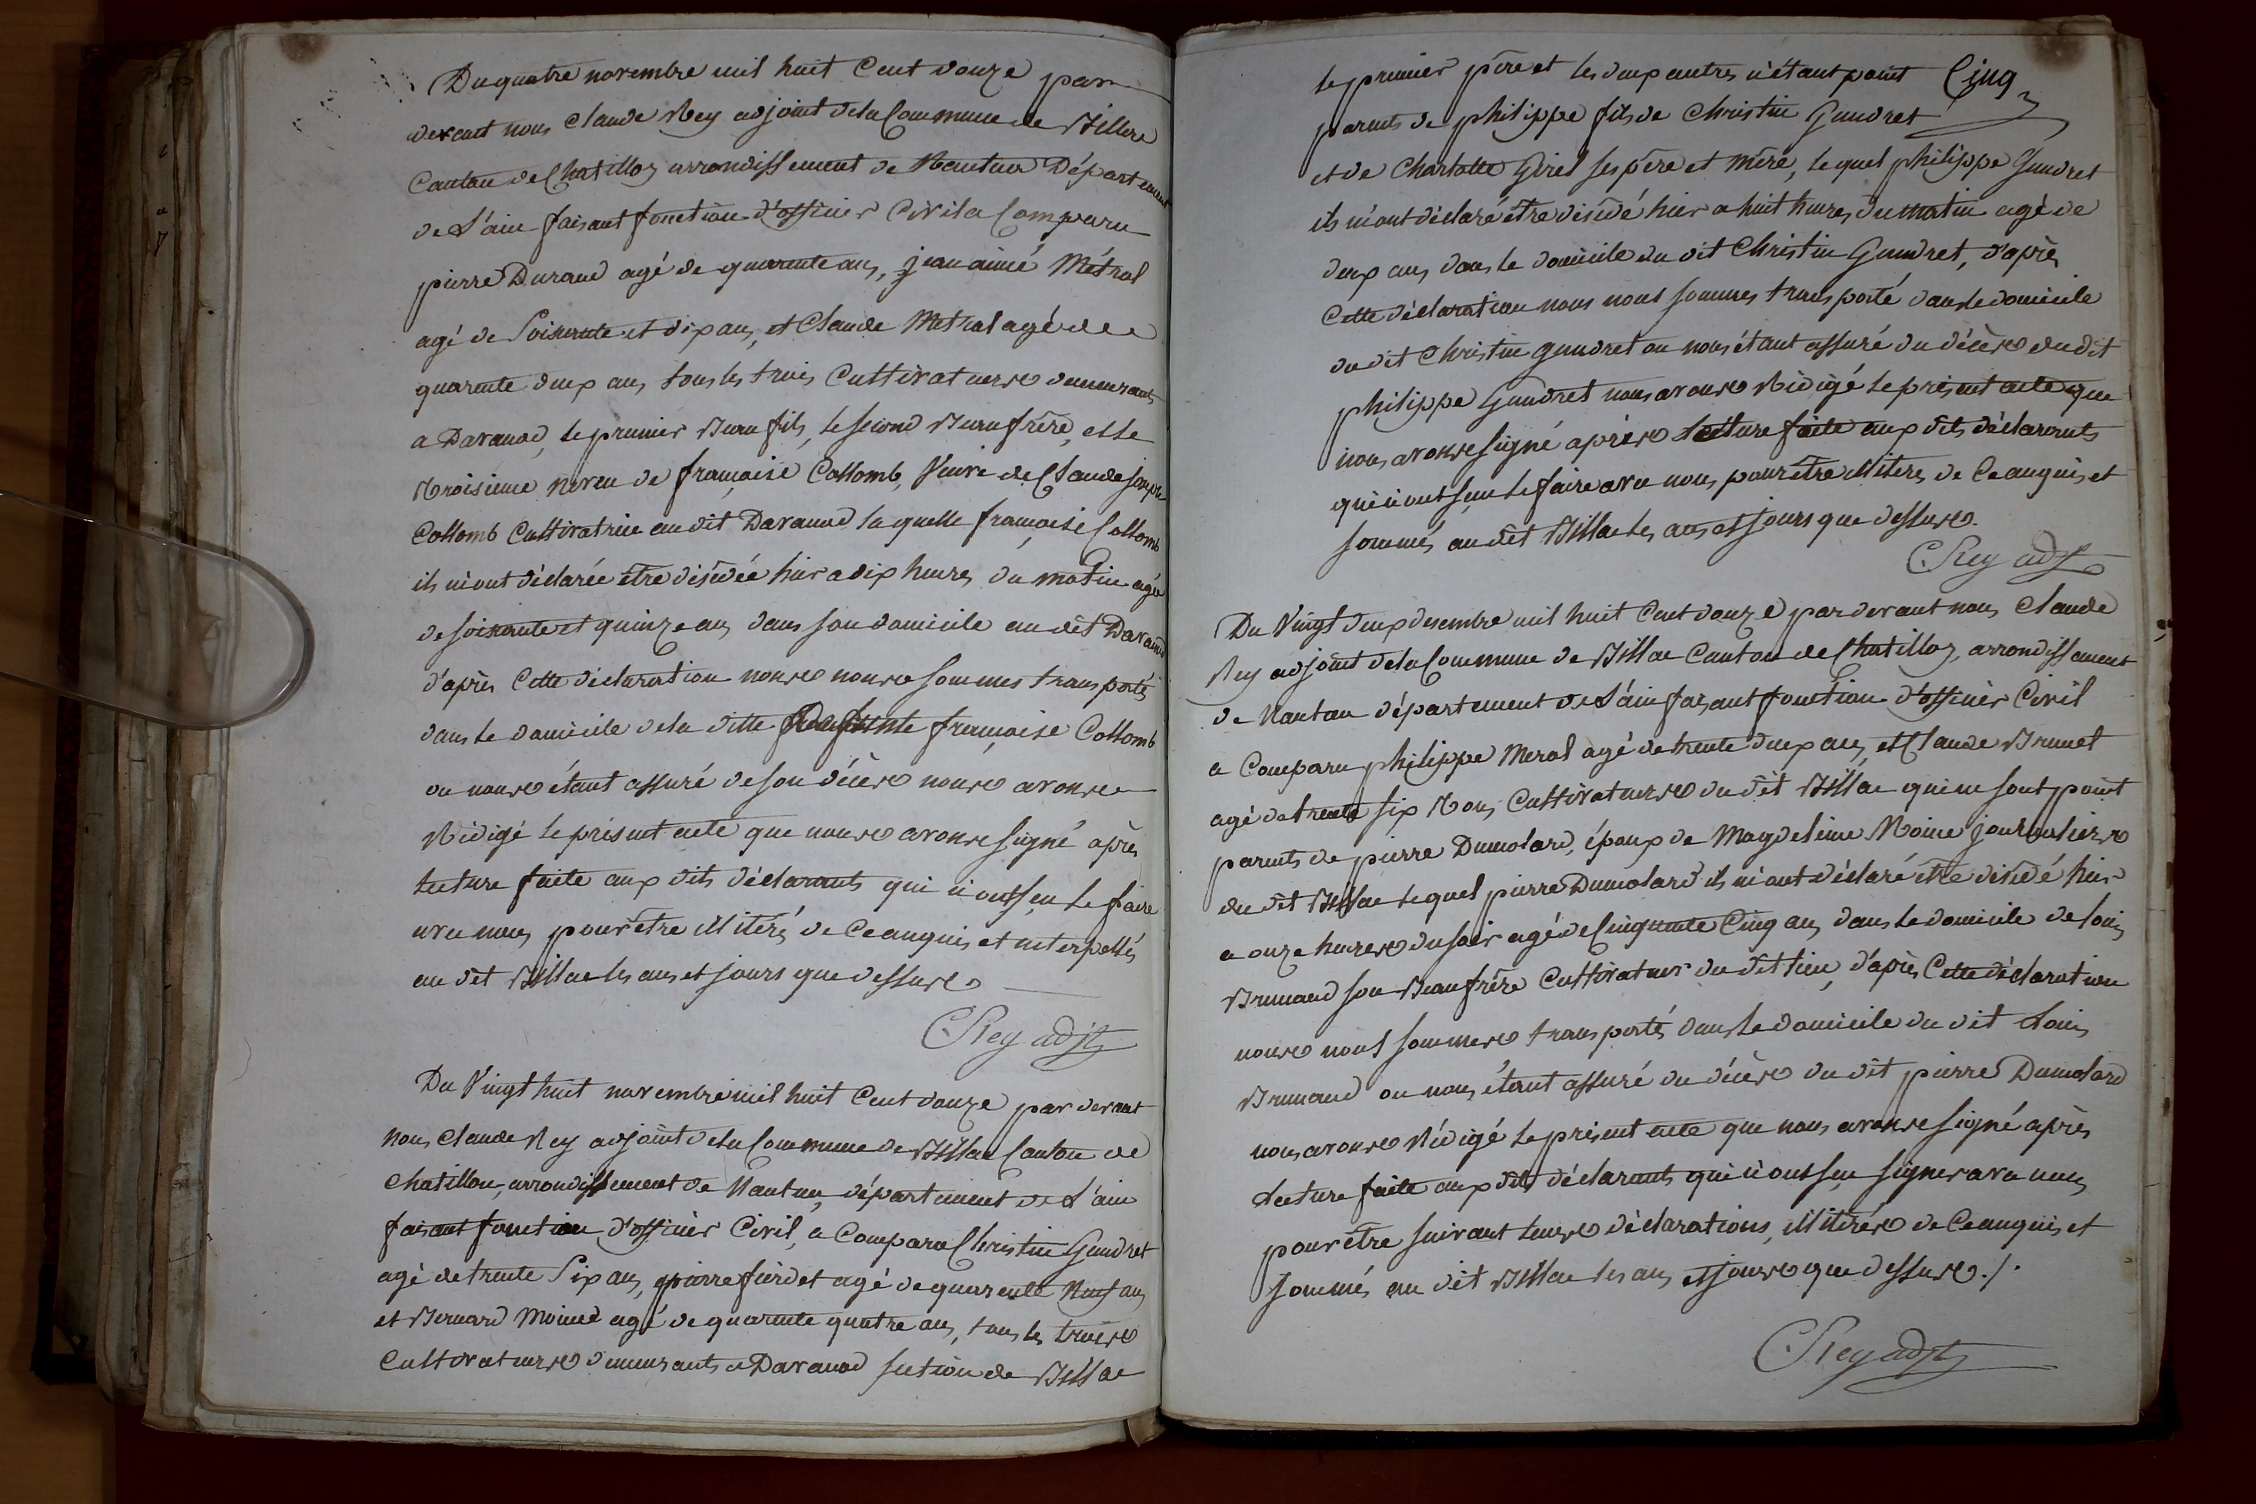 Du quatre novembre mil huit Cent douze par
devant nous Claude Rey adjoint de la Commune de Billiac
Canton de Chatillon arrondissement de Nantua Département
de L'ain faisant fonction d'officier Civil a Comparu
pierre Durand agé de quarante ans, jean aimé Métral
agé de Soixante et dix ans, et Claude Metral agé de
quarante deux ans tous les trois Cultivateurs demeurants
a Davanod, le premier Beau fils, le second Beau frère, et le
troisieme neveu de françoise Collomb, Veuve de Claude joseph
Collomb Cultivatrice au dit Davanod laquelle françoise Collomb
ils m'ont déclarée être désédée hier a dix heures du matin agée
de soixante et quinze ans dans son domicile au dit Davanod
d'après Cette déclaration nous nous sommes transportés
dans le domicile de la ditte françoise Collomb
ou nous étant assuré de son décès nous avons
Rédigé le présent acte que nous avons signé après
lecture faite aux dits déclarants qui n'ont sçu le faire
avec nous pour être illitérés de Ce anquis et interpellés
au dit Billiac les ans et jours que dessus
CRey adjt
Du Vingt huit novembre mil huit Cent douze par devant
nous Claude Rey adjoint de la Commune de Billiac Canton de
Chatillon, arrondissement de Nantua, département de L'ain
faisant fonction d'officier Civil, a Comparu Christin Gandret
agé de trente Six ans, pierre agé de quarente Neuf ans
et Bernard Moine agé de quarante quatre ans, tous les trois
Cultivateurs demeurants a Davanod section de Billiac
le premier père et les deux autres n'étant point Cinq
parents de philippe fils de Christin Gandret
et de Charlotte Girel ses père et mère, lequel philippe Gandret
ils m'ont déclaré être désédé hier a huit heures du matin agé de
deux ans dans le domicile du dit Christin Gandret, d'après
Cette déclaration nous nous sommes transporté dans le domicile
du dit Christin gandret ou nous étant assuré du décès du dit
philippe Gandret nous avons Rédigé le présent acte que
nous avons signé après lecture faite aux dits déclarants
qui n'ont sçu le faire avec nous, pour être illitérés de Ce anquis et
sommés au dit Billiac les ans et jours que dessus.
CRey adjt
Du Vingt deux desembre mil huit Cent douze par devant nous Claude
Rey adjoint de la Commune de Billiac Canton de Chatillon, arrondissement
de Nantua département de L'ain faisant fonction d'officier Civil
a Comparu philippe Meral agé de trente deux ans, et Claude Brunet
agé de trente six ans, Cultivateurs du dit Billiac qui ne sont point
parents de pierre Dumolard, époux de Magdeleine Moine journalière
du dit Billiac lequel pierre Dumolard ils m'ont déclaré être désédé hier
a onze heures du soir agé de Cinquante Cinq ans, dans le domicile de louis
Brunaud son Beau frère Cultivateur du dit lieu, d'après Cette déclaration
nous nous sommes transportés dans le domicile du dit Louis
Brunaud ou nous étant assuré du décès du dit pierre Dumolard
nous avons Rédigé le présent acte que nous avons signé après
Lecture faite aux dits déclarants qui n'ont sçu signer avec nous
pour être suivant leurs déclarations, illitérés de Ce anquis et
sommés au dit Billiac les ans et jours que dessus./.
CRey adjt